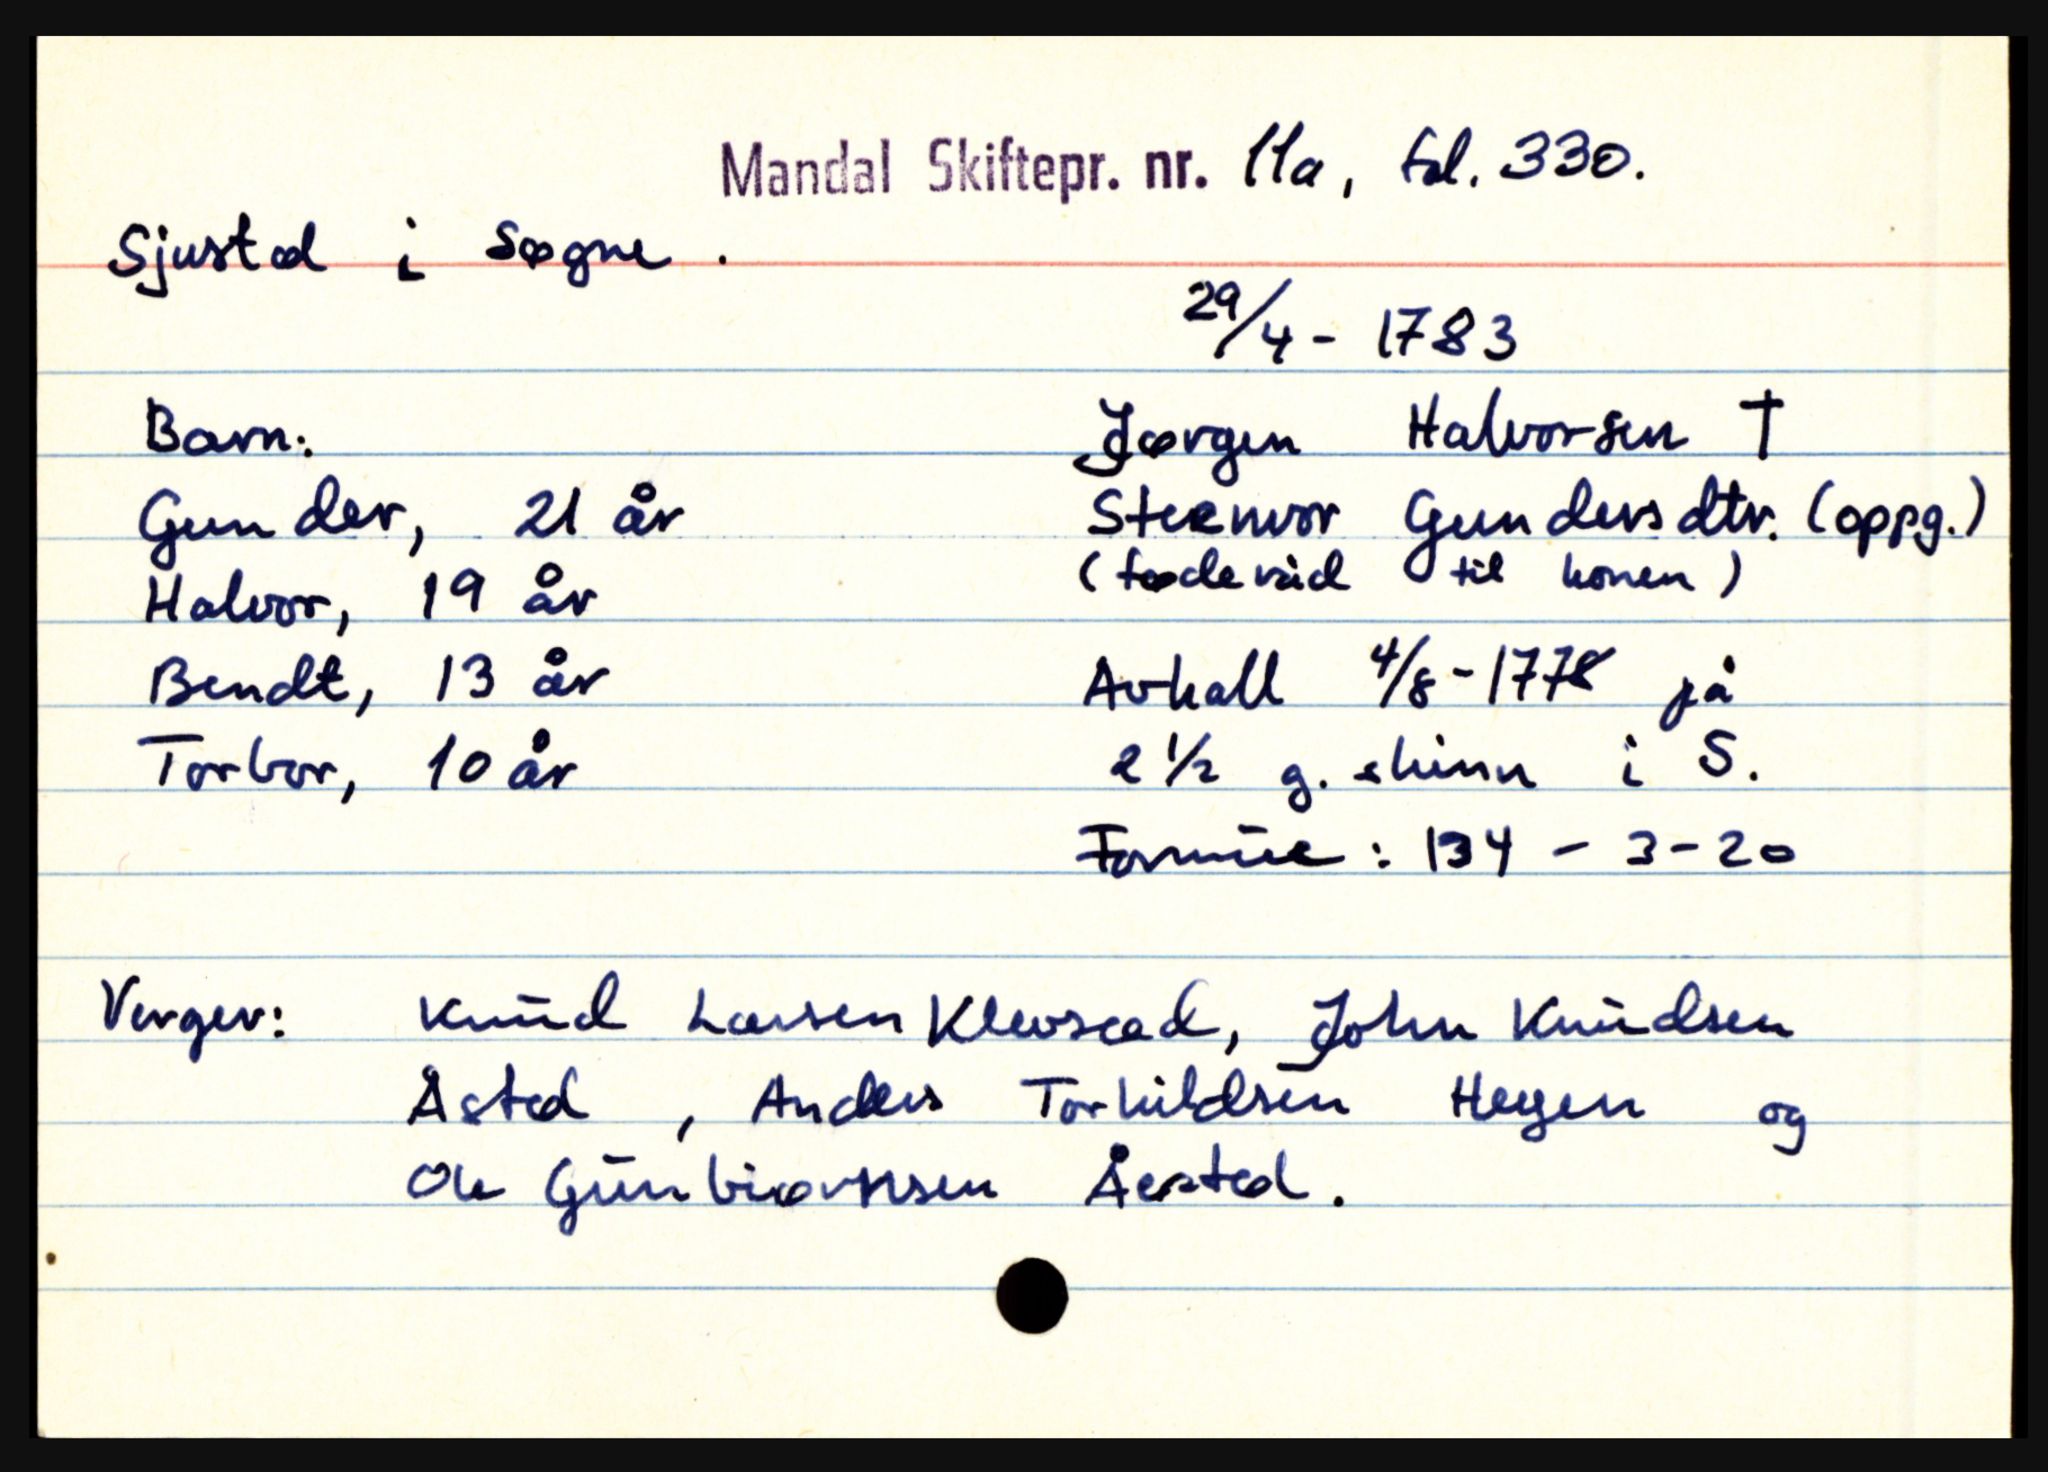 Mandal Skiftepr. nr. 11a, fol. 330.
Sjustad i Søgne.
29/4 - 1783
Barn:
Gunder, 21 år
Halvor, 19 år
Bendt, 13 år
Torbor, 10 år
Jørgen Halvorsen †
Steenvor Gundersdtr. (oppg.)
(føderåd til konen)
Avkall 4/8 - 1778 på
2 1/2 g. skinn i S.
Formue: 134 - 3 - 20
Verger: Knud Larsen Klevsæd, John Knudsen
Åsted, Anders Torkildsen Heyen og
Ole Gunbiørnsen Åersted.